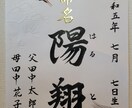 令和五年 七月 七日
命名
陽翔
はると
父田中太郎
母田中花子